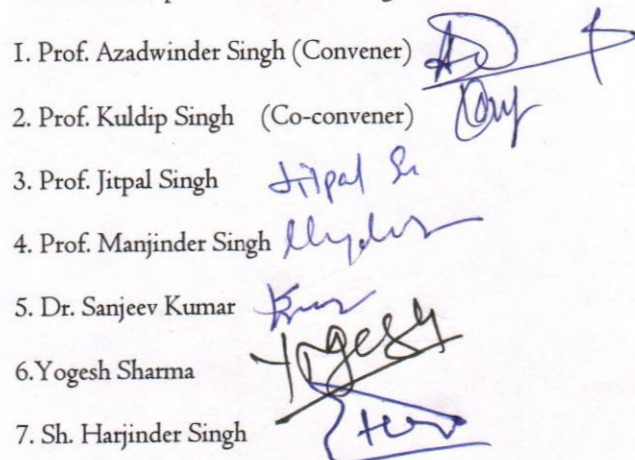 1. Prof. Azadwinder Singh (Convener)
2. Prof. Kuldip Singh (Co-convener)
3. Prof. Jitpal Singh Jitpal Sn
4. Prof. Manjinder Singh
5. Dr. Sanjeev Kumar
6.Yogesh Sharma Yogesh
7. Sh. Harjinder Singh